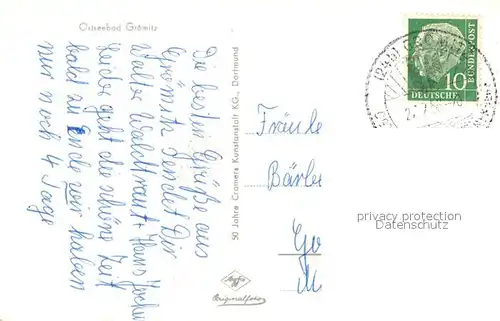 Ostseebad Grömitz
Die besten Grüße aus
Grömitz sendet Dir
Walter Waltraut + Hans Jochen
Leider geht die schöne Zeit
bald zu Ende wir haben
nur noch 4 Tage
50 Jahre Cramers Kunstanstalt KG., Dortmund
Agfa
Originalfoto
Fräule
Bärbe
DEUTSCHE BUNDESPOST
10
privacy protection
Datenschutz